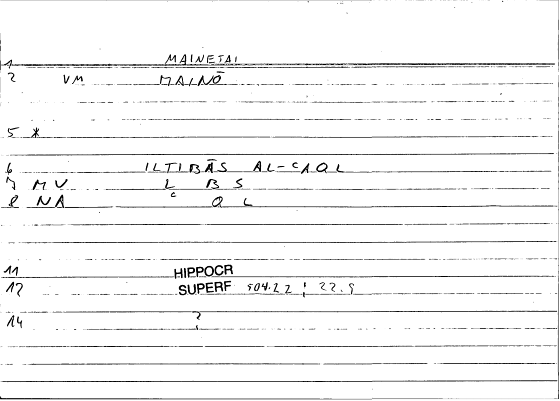 1 MAINETAI
2 VM MAINŌ
5 *
6 ILTIBĀS AL-ʿAQL
7 MV L B S
8 NA ʿ Q L
11 HIPPOCR
12 SUPERF 504.22 ¦ 22.9
14 ?